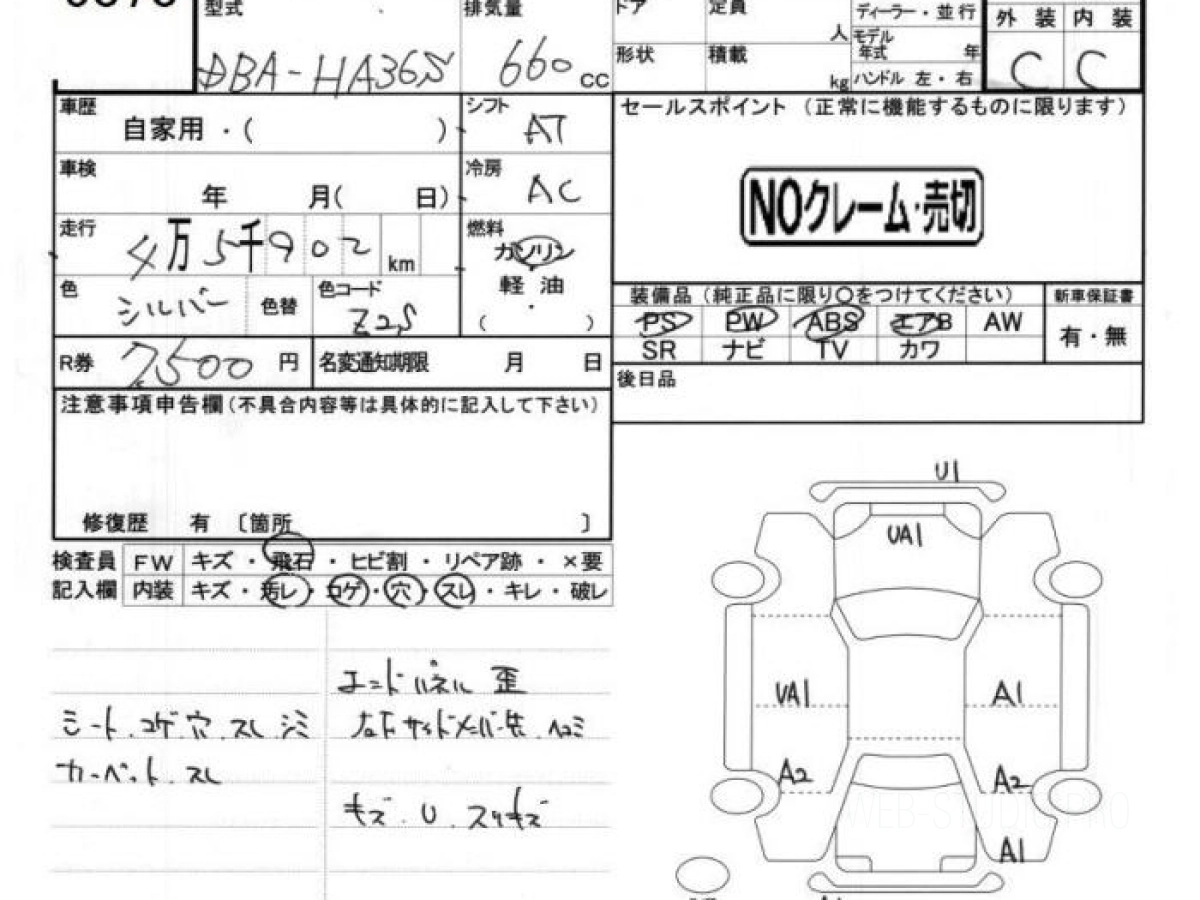 型式 DBA-HA36S
排気量 660 cc
ドア
定員 人
形状
積載 kg
ディーラー・並行
モデル年式 年
ハンドル 左・右
外装 内装
C C
車歴 自家用・( )
シフト AT
車検 年 月( 日)
冷房 AC
走行 4万5千902 km
燃料 ガソリン
軽油
・
( )
色 シルバー 色替 色コード Z2S
R券 7,500 円 名変通知期限 月 日
注意事項申告欄(不具合内容等は具体的に記入して下さい)
修復歴 有 〔箇所 〕
セールスポイント (正常に機能するものに限ります)
NOクレーム・売切
装備品(純正品に限り○をつけてください) 新車保証書
PS PW ABS エアB AW 有・無
SR ナビ TV カワ
後日品
検査員 FW キズ・飛石・ヒビ割・リペア跡・×要
記入欄 内装 キズ・汚レ・コゲ・穴・スレ・キレ・破レ
シート.コゲ.穴.スレ.シミ
カーペット.スレ
エンドパネル 歪
左右サイドメンバー先.ヘコミ
キズ.U.スリキズ
U1
UA1
UA1
A1
A2
A2
A1
WEB-STUDIO.PRO